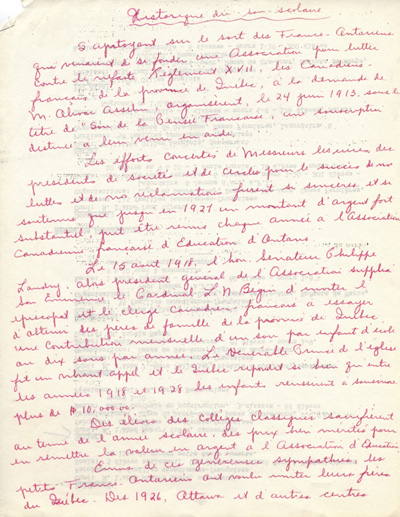 Historique du sou scolaire
S'apitoyant sur le sort des Franco-Ontariens
qui venaient de se fonder une Association pour lutter
contre le néfaste Règlement XVII, les Canadiens-
français de la province de Québec, à la demande de
M. Olivar Asselin, organisèrent, le 24 juin 1913, sous le
titre de "Sou de la Pensée Française", une souscription
destinée à leur venir en aide.
Les efforts concertés de Messieurs les curés, des
présidents de sociétés et de cercles pour le succès de nos
luttes et de nos réclamations furent si sincères et si
soutenus que jusqu'en 1927 un montant d'argent fort
substantiel put être remis chaque année à l'Association
Canadienne française d'Education d'Ontario.
Le 15 août 1918, l'hon. Sénateur Philippe
Landry, alors président général de l'Association supplia
Son Eminence le Cardinal L. N. Bégin d'inviter l'
épiscopat et le clergé Canadien-français à essayer
d'obtenir des pères de famille de la province de Québec
une contribution mensuelle d'un sou par enfant d'école
ou dix sous par année. Le Vénérable Prince de l'église
fit un vibrant appel et le Québec répondit si bien qu'entre
les années 1918 et 1928 les enfants réussirent à souscrire
plus de $10,000.00.
Des élèves des collèges classiques sacrifièrent
au terme de l'année scolaire, des prix bien mérités pour
en remettre la valeur en argent à l'Association d'Education
Emus de ces généreuses sympathies, les
petits Franco-Ontariens ont voulu imiter leurs frères
du Québec. Dès 1926, Ottawa et d'autres centres